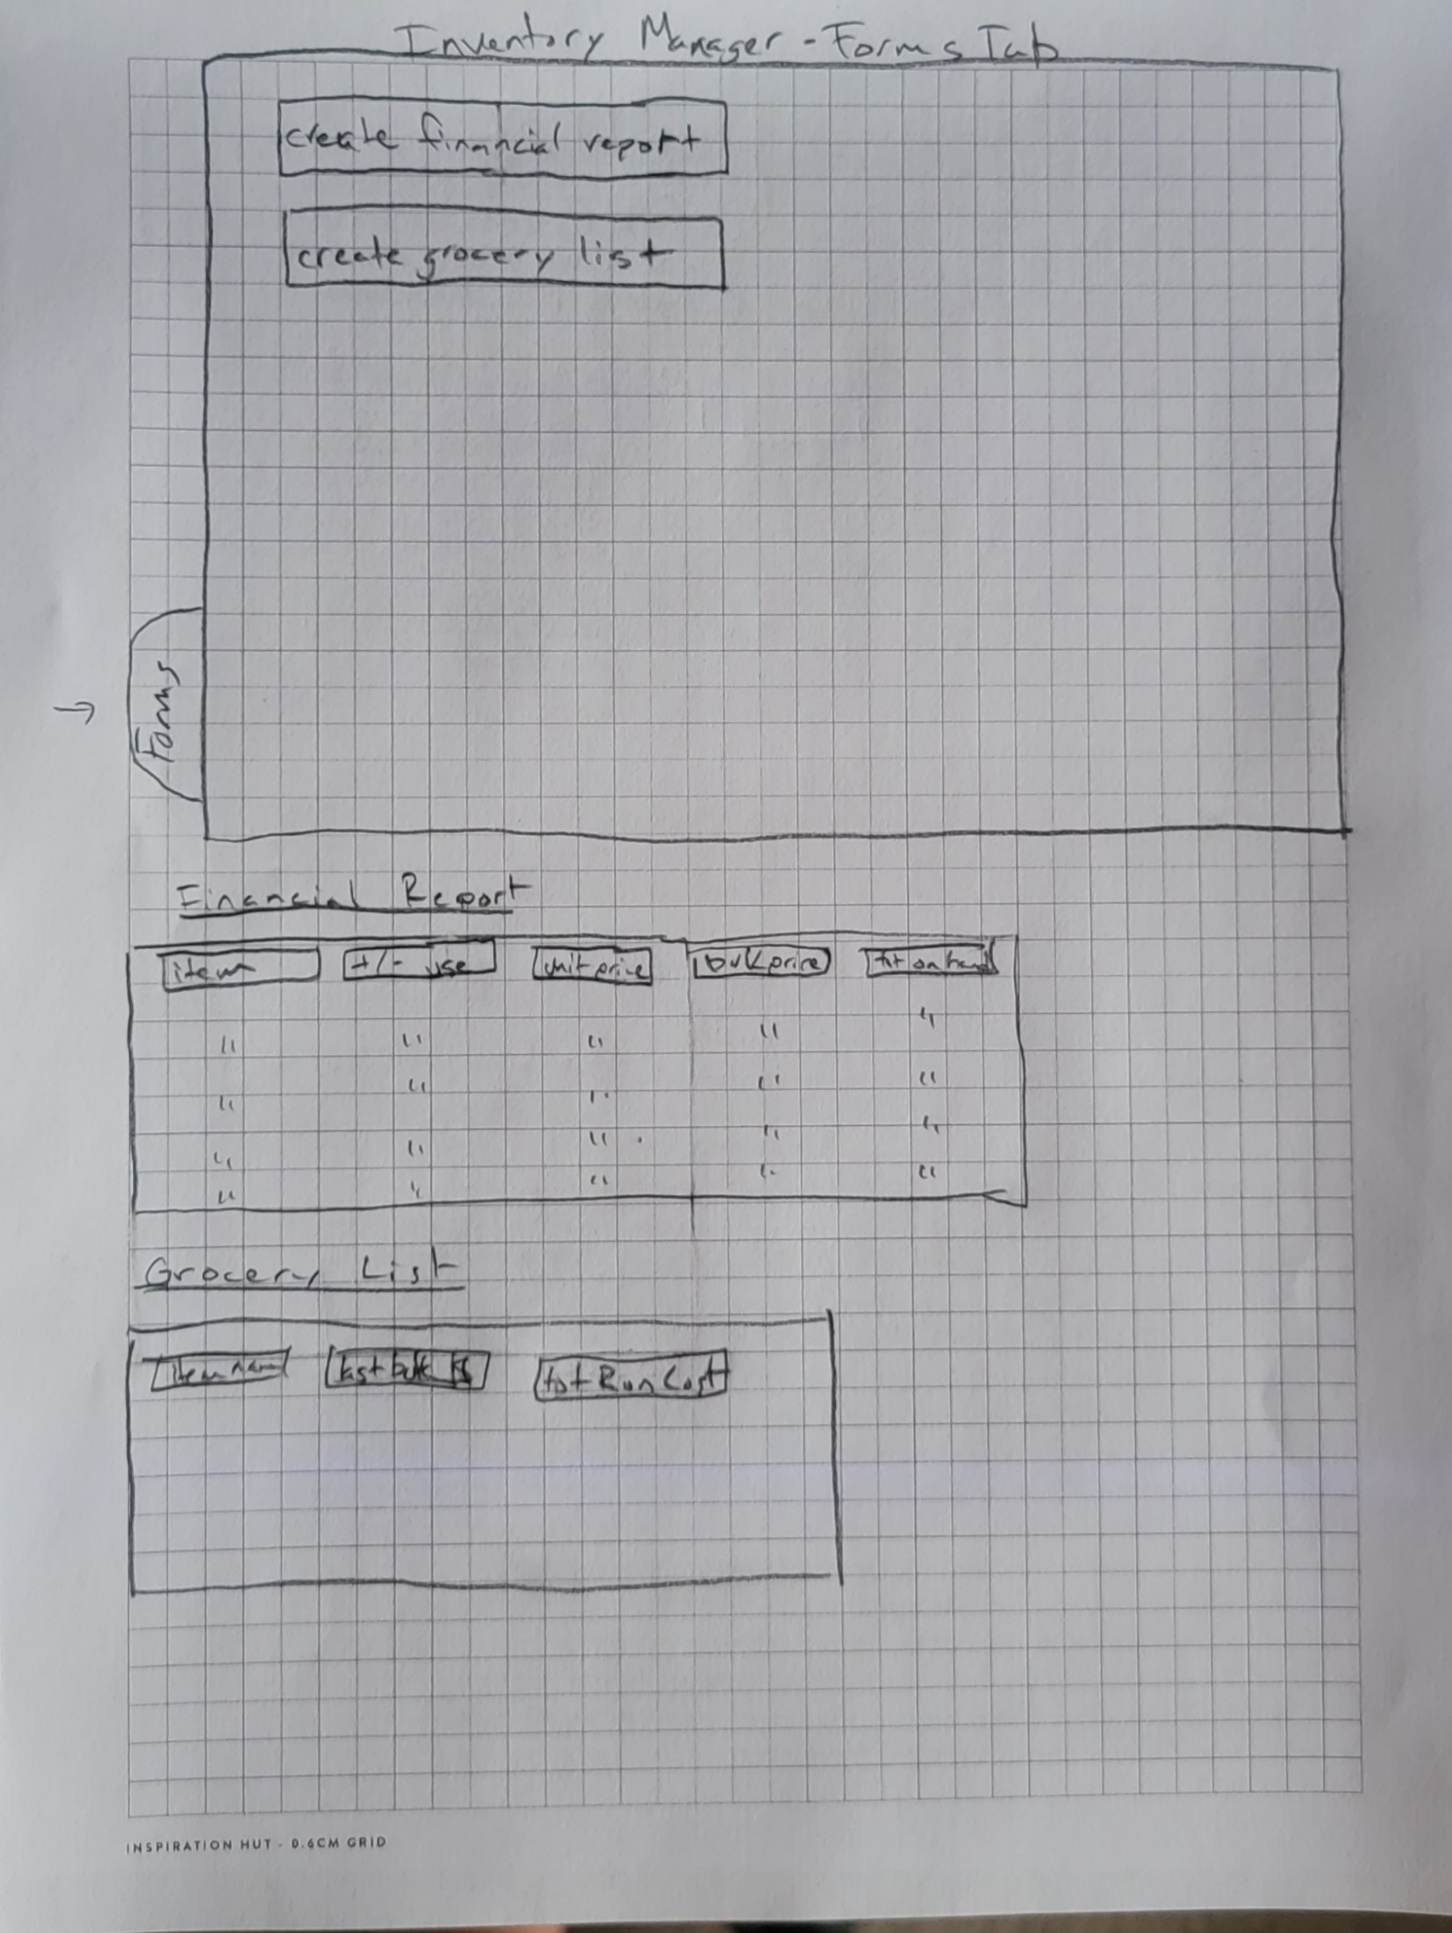 Inventory Manager - Forms Tab
create financial report
create grocery list
Forms
→
Financial Report
item +/- use unit price bulk price tot on hand
" " " " "
" " " " "
" " " " "
" " " " "
Grocery List
item name last bulk $ tot Run Cost
INSPIRATION HUT - 0.6CM GRID